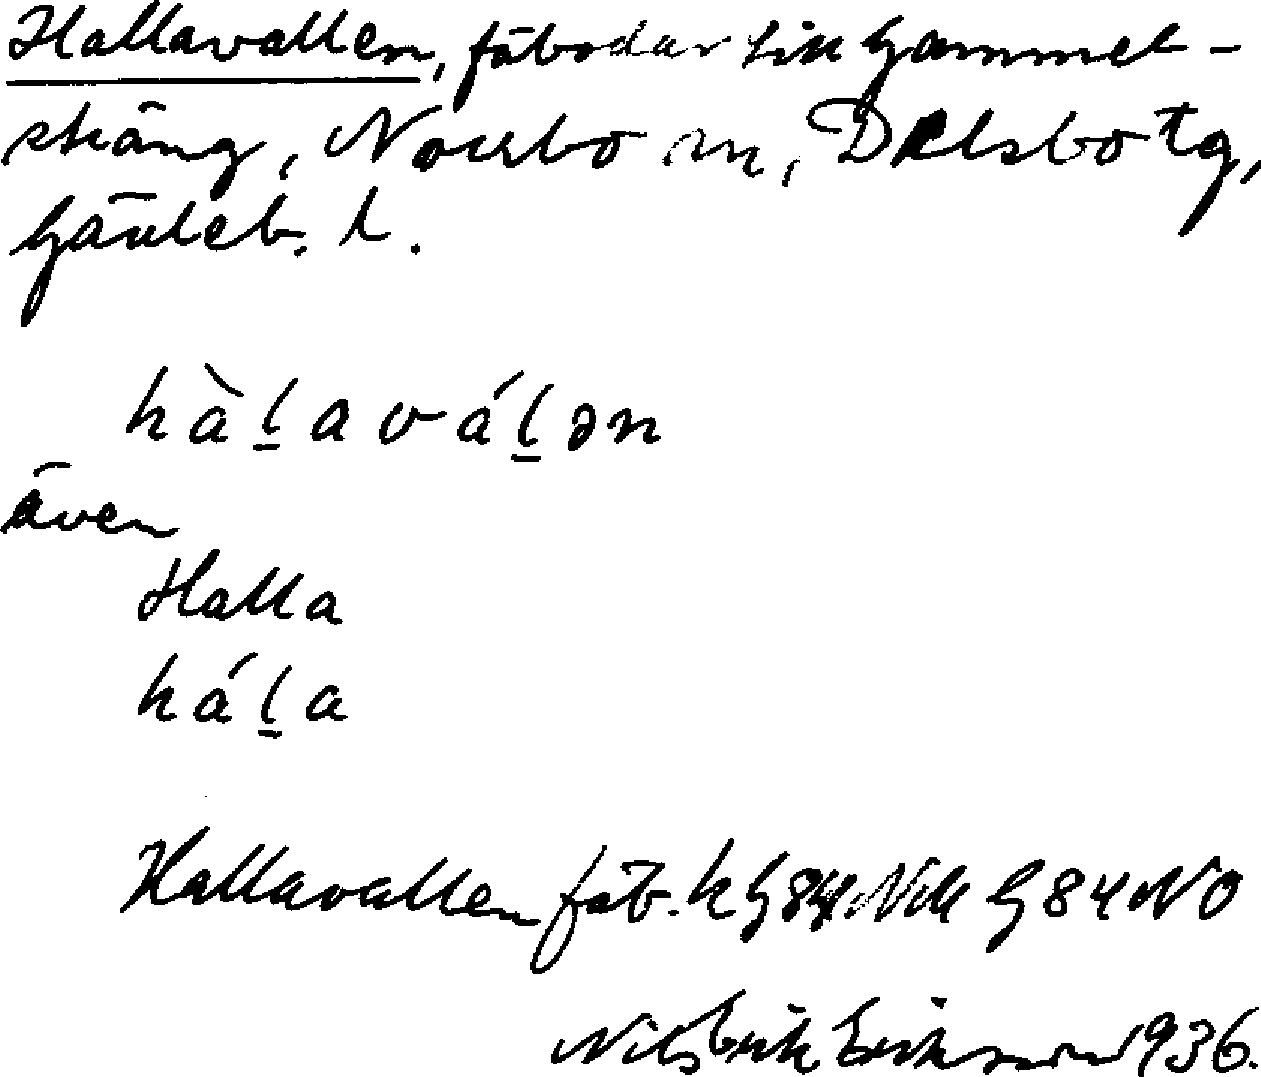 Hallavallen, fäbodar till Gammel-
sträng, Norrbo sn, Delsbo tg,
Gävleb. l.
hàḻaváḻən
även
Halla
háḻa
Hallavallen fäb. k G84 G84NO
Nils Erik Eriksson 1936.